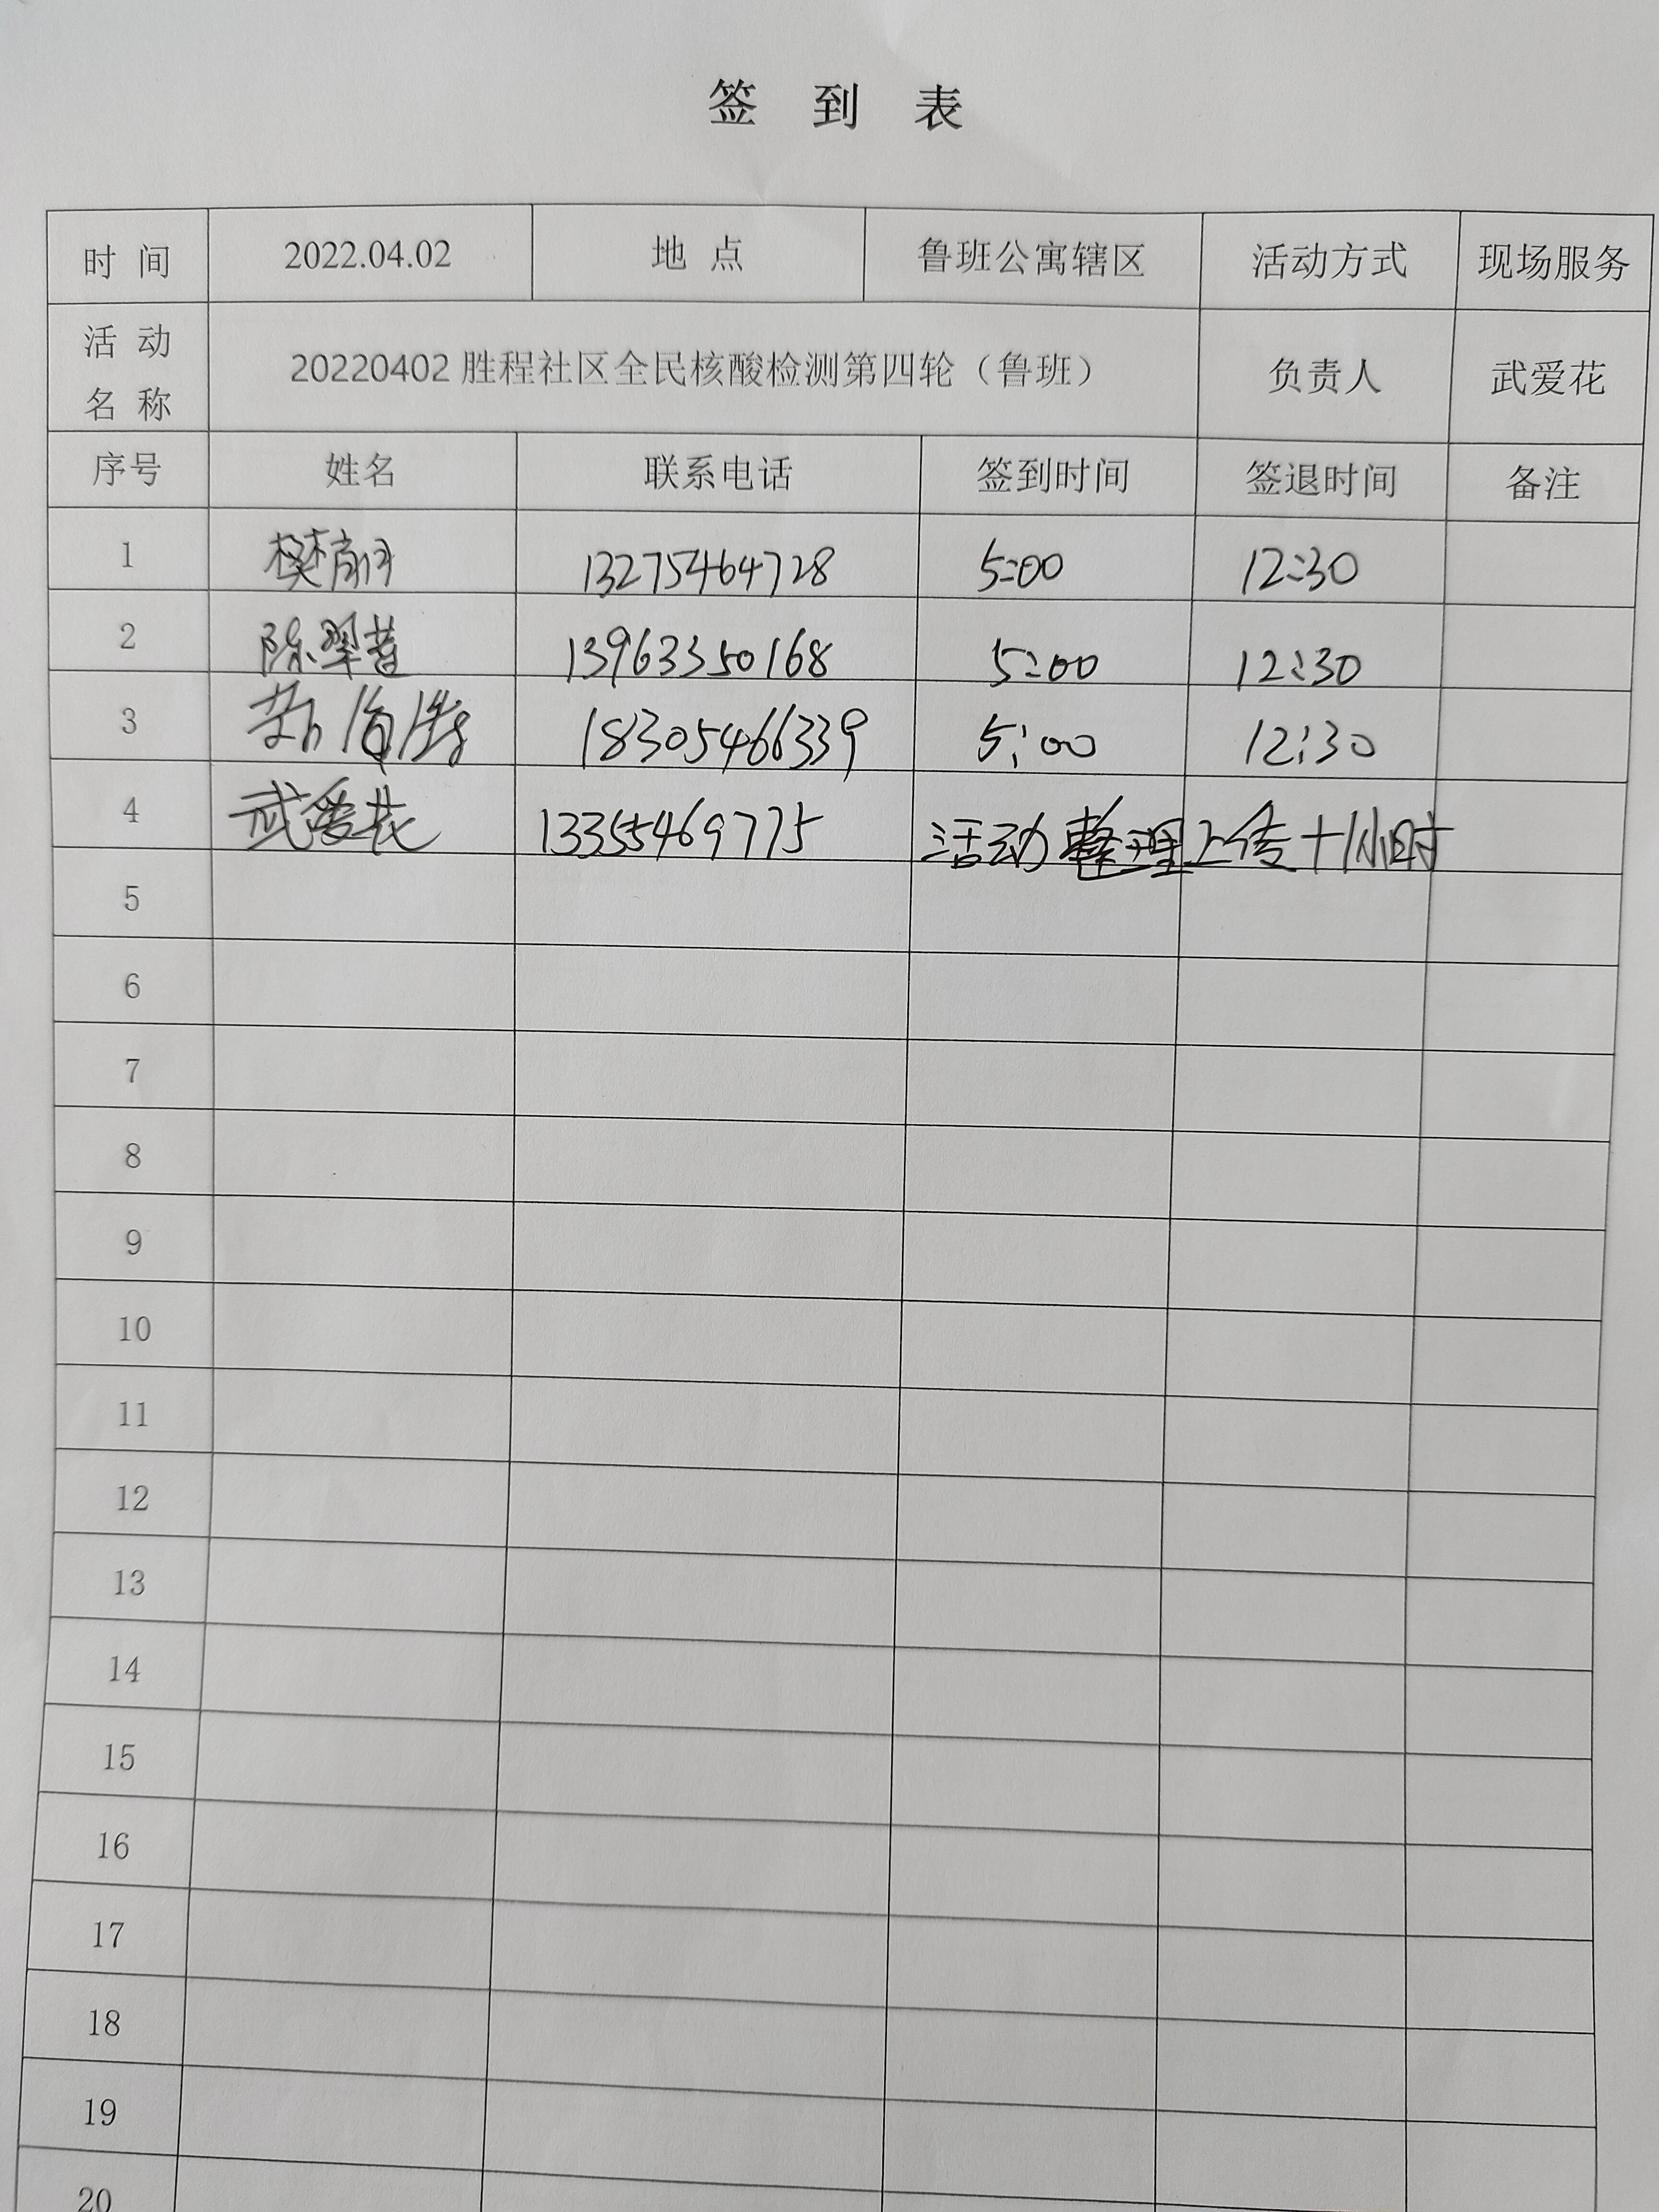 签 到 表
时 间 2022.04.02 地 点 鲁班公寓辖区 活动方式 现场服务
活 动 名 称 20220402胜程社区全民核酸检测第四轮（鲁班） 负责人 武爱花
序号 姓名 联系电话 签到时间 签退时间 备注
1 樊 13275464728 5:00 12:30
2 陈翠 13963350168 5:00 12:30
3 18305466339 5:00 12:30
4 武爱花 13355469775 活动整理上传+1小时
5
6
7
8
9
10
11
12
13
14
15
16
17
18
19
20